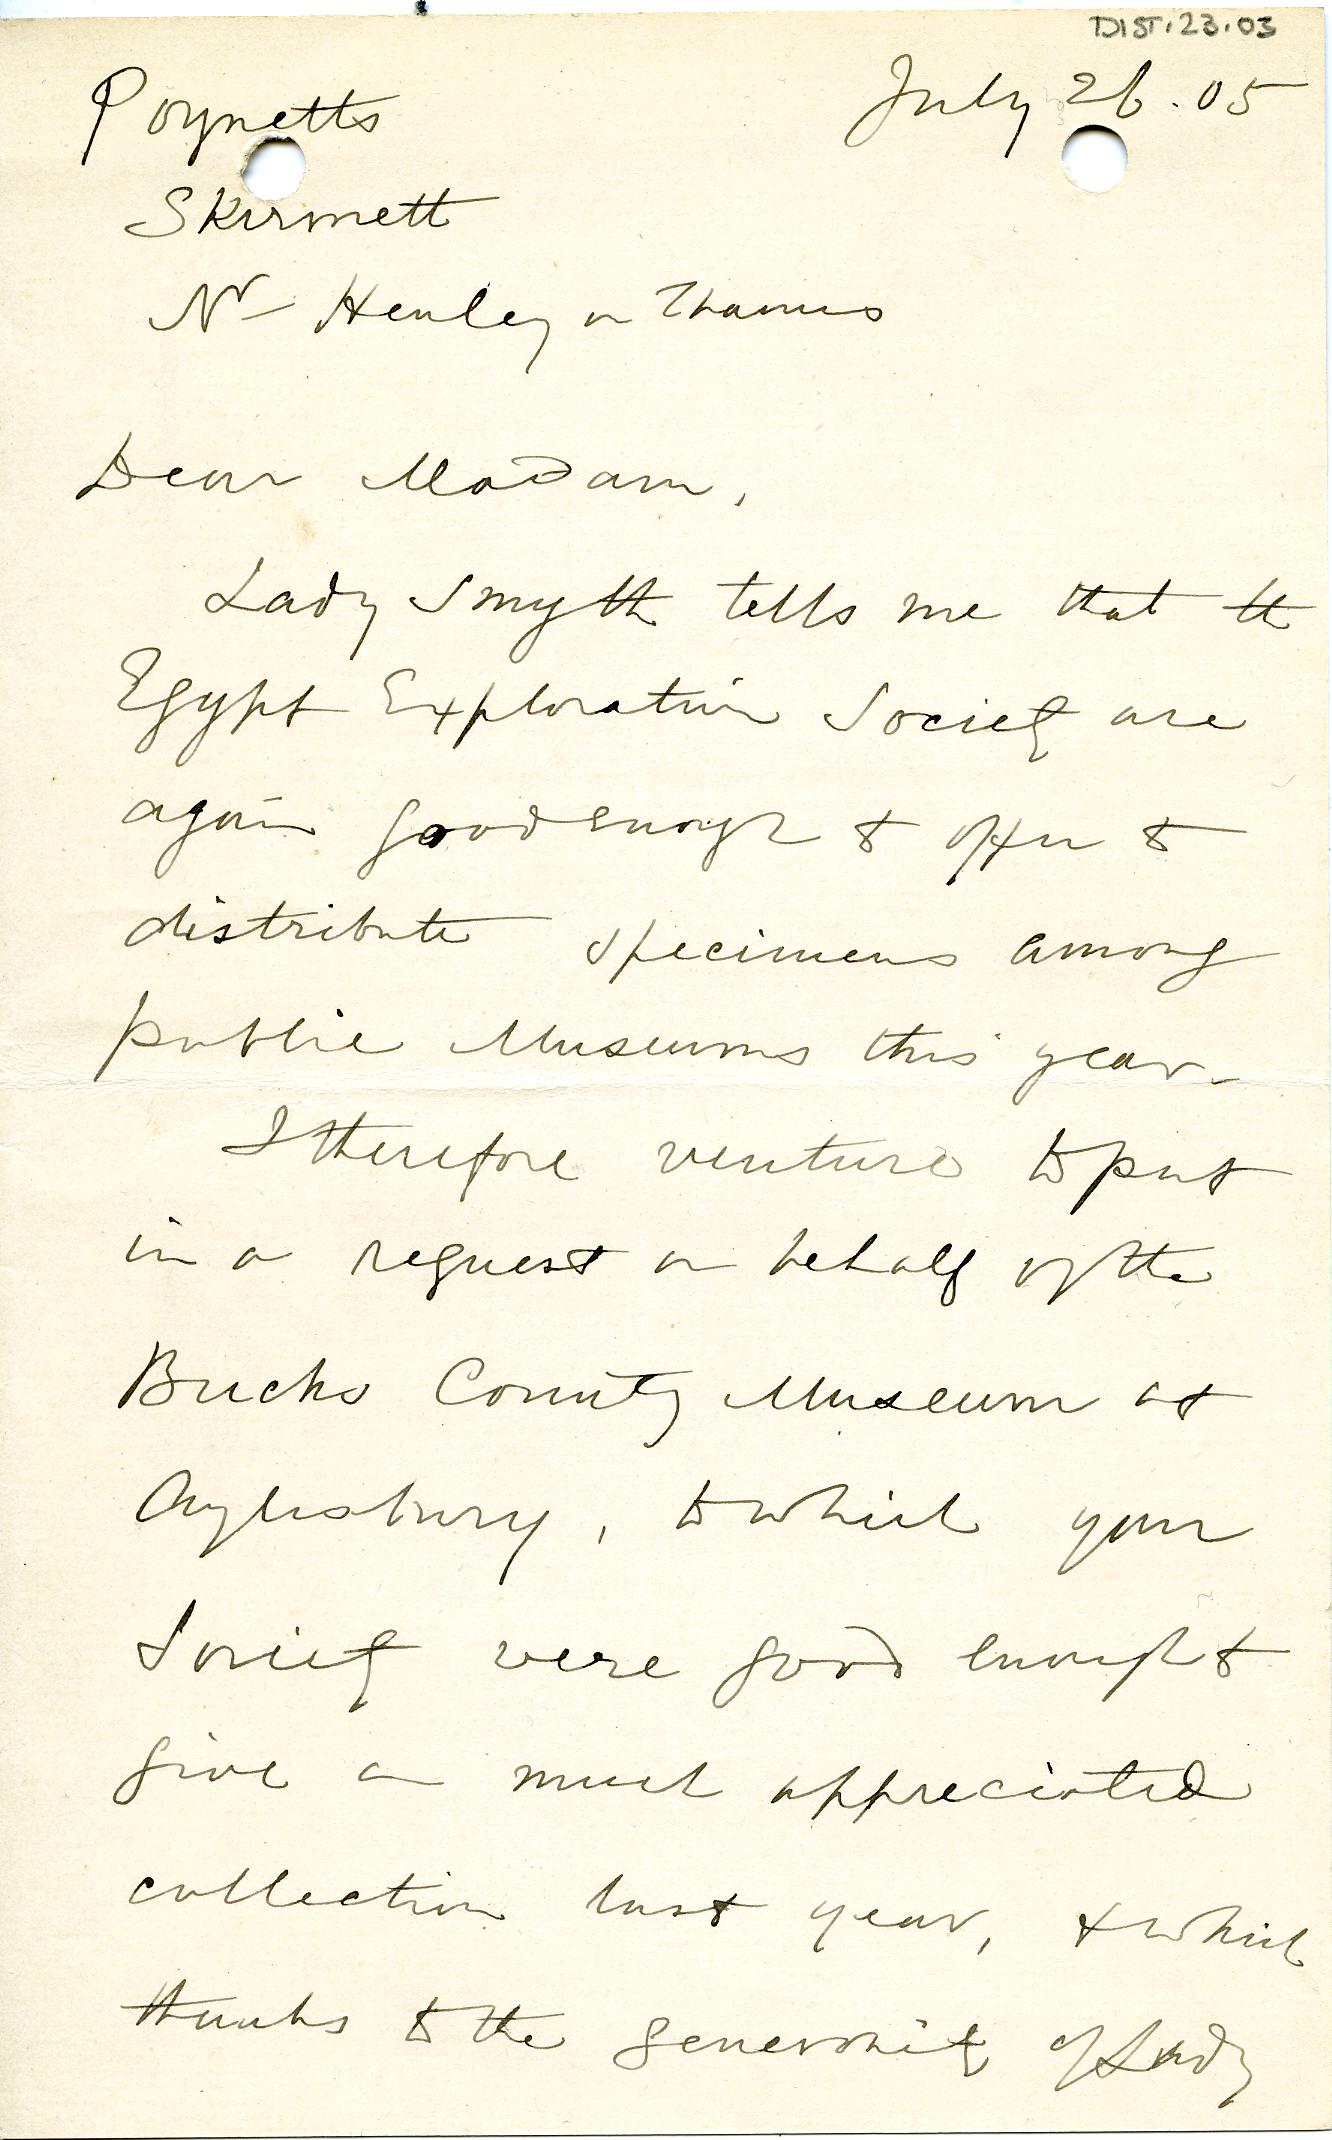 DIST.23.03
Poynetts
July 26.05
Skirmett
Nr Henley on Thames
Dear Madam,
Lady Smyth tells me that the
Egypt Exploration Society are
again good enough to offer to
distribute specimens among
public Museums this year.
I therefore venture to put
in a request on behalf of the
Bucks County Museum at
Aylesbury, to which your
Society were good enough to
give a much appreciated
collection last year, & which
thanks to the generosity of Lady